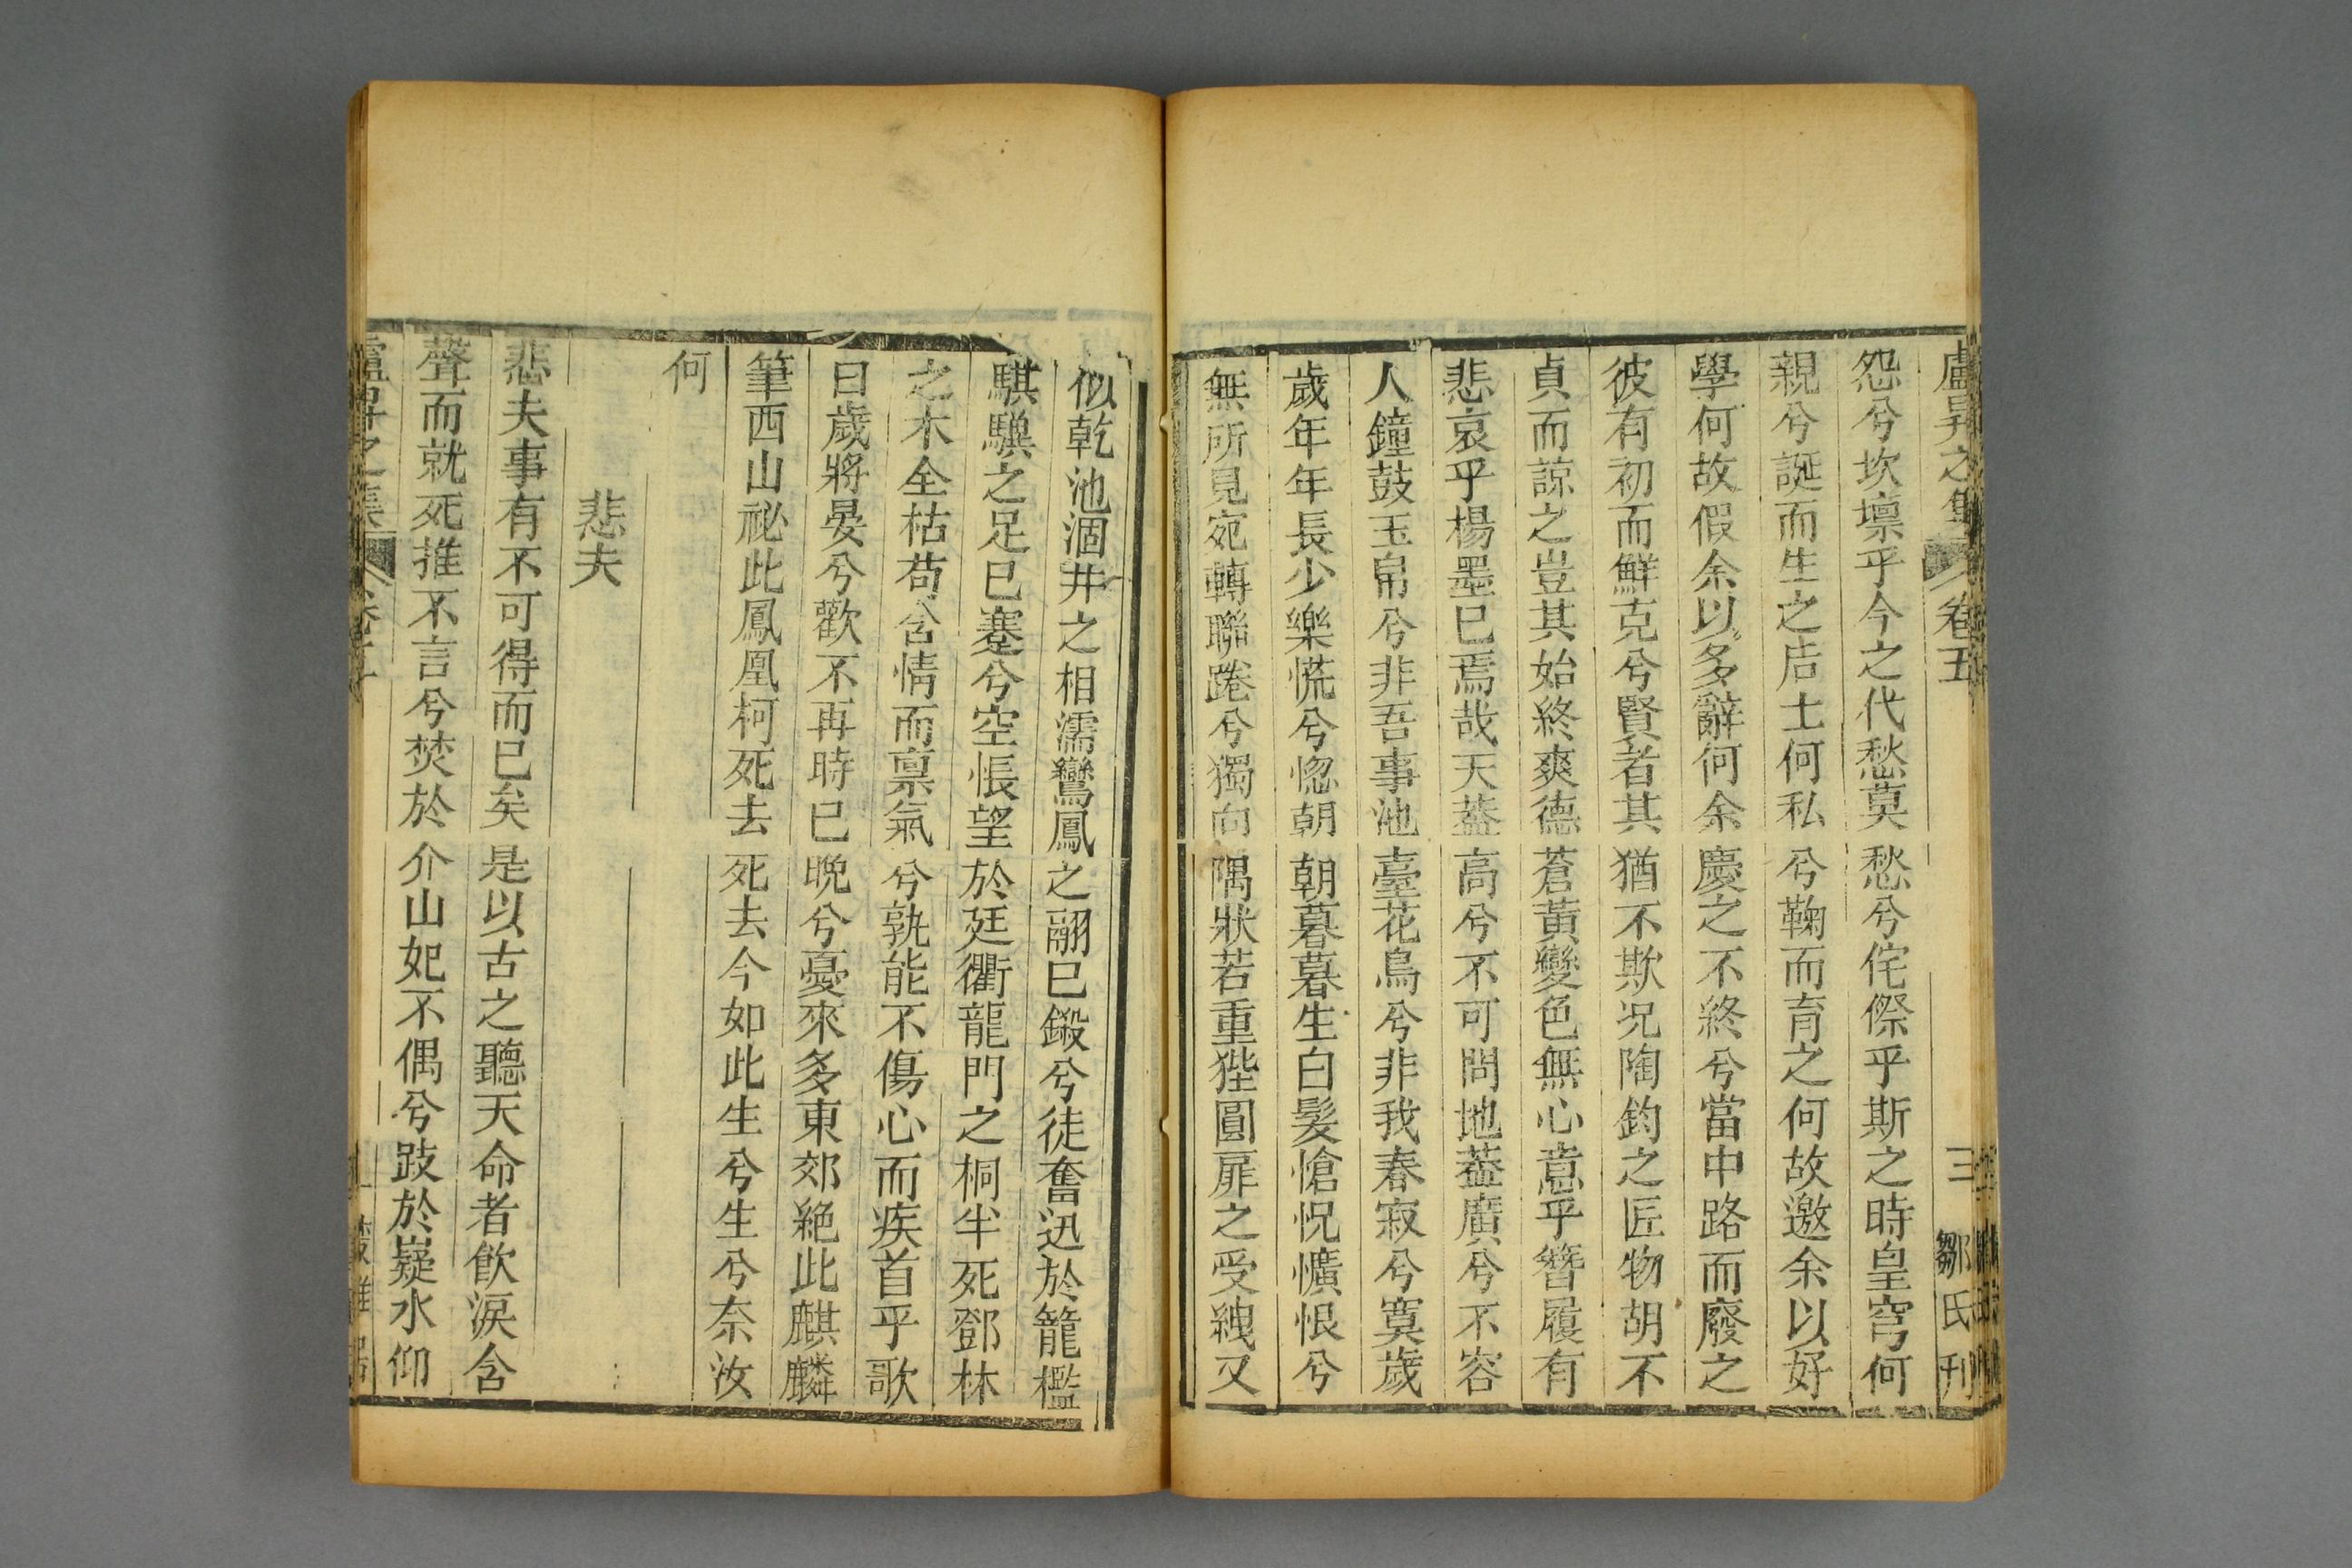 盧昇之集 卷五 三 鄒氏刊
怨兮坎壈乎今之代愁莫愁兮侘傺乎斯之時皇穹何
親兮誕而生之后土何私兮鞠而育之何故邀余以好
學何故假余以多辭何余慶之不終兮當中路而廢之
彼有初而鮮克兮賢者其猶不欺况陶鈞之匠物胡不
貞而諒之豈其始終爽德蒼黃變色無心意乎簪履有
悲哀乎楊墨已焉哉天葢高兮不可問地葢廣兮不容
人鐘鼓玉帛兮非吾事池臺花鳥兮非我春寂兮寞歲
歲年年長少樂慌兮惚朝朝暮暮生白髮愴怳懭悢兮
無所見宛轉聯踡兮獨向隅狀若重狴圓扉之受緤又
似乾池涸井之相濡鸞鳳之翮已鎩兮徒奮迅於籠檻
騏驥之足已蹇兮空悵望於廷衢龍門之桐半死鄧林
之木全枯苟含情而禀氣兮孰能不傷心而疾首乎歌
曰歲將晏兮歡不再時已晚兮憂來多東郊絶此麒麟
筆西山祕此鳳凰柯死去死去今如此生兮生兮奈汝
何
悲夫
悲夫事有不可得而已矣是以古之聽天命者飲淚含
聲而就死推不言兮焚於介山妃不偶兮跂於嶷水仰